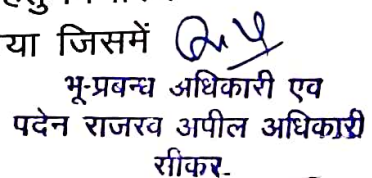 या जिसमें
भू-प्रबन्ध अधिकारी एव
पदेन राजरव अपील अधिकारी
सीकर-